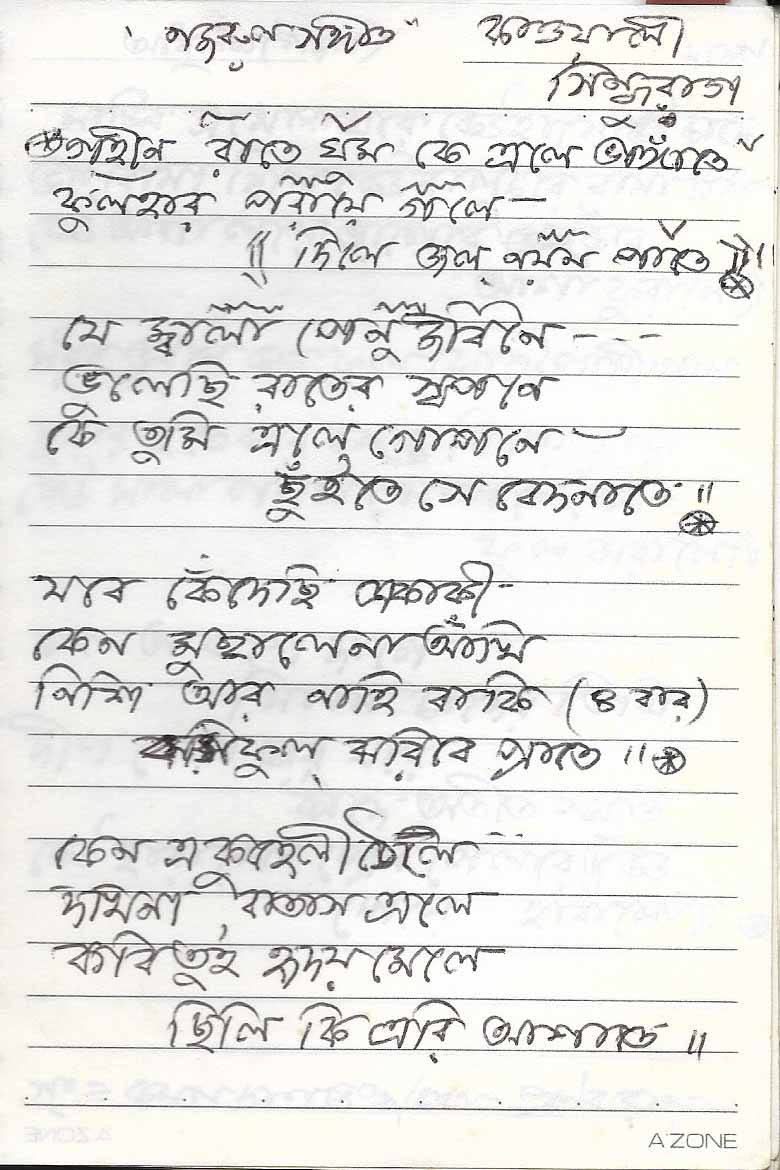 "নজরুল সঙ্গীত" কাওয়ালী
সিন্ধুরাগ
গহীন রাতে ঘুম কে এলে ভাঙ্গাতে
ফুলহার পরায়ে গলে—
॥ দিলে জল নয়ন পাতে ॥
যে জ্বালা পেনু জীবনে ---
ভুলেছি রাতের স্বপনে
কে তুমি এলে গোপনে—
ছুঁইতে সে বেদনাতে ॥
যবে কেঁদেছি একাকী-
কেন মুছালেনা আঁখি
নিশি আর নাহি বাকি (৪ বার)
বাসিফুল ঝরিবে প্রাতে ॥
কেন এ কুহেলী ঠেলে
দখিনা বাতাস এলে
কবি তুই হৃদয় মেলে
ছিলি কি এরি আশাতে ॥
A'ZONE